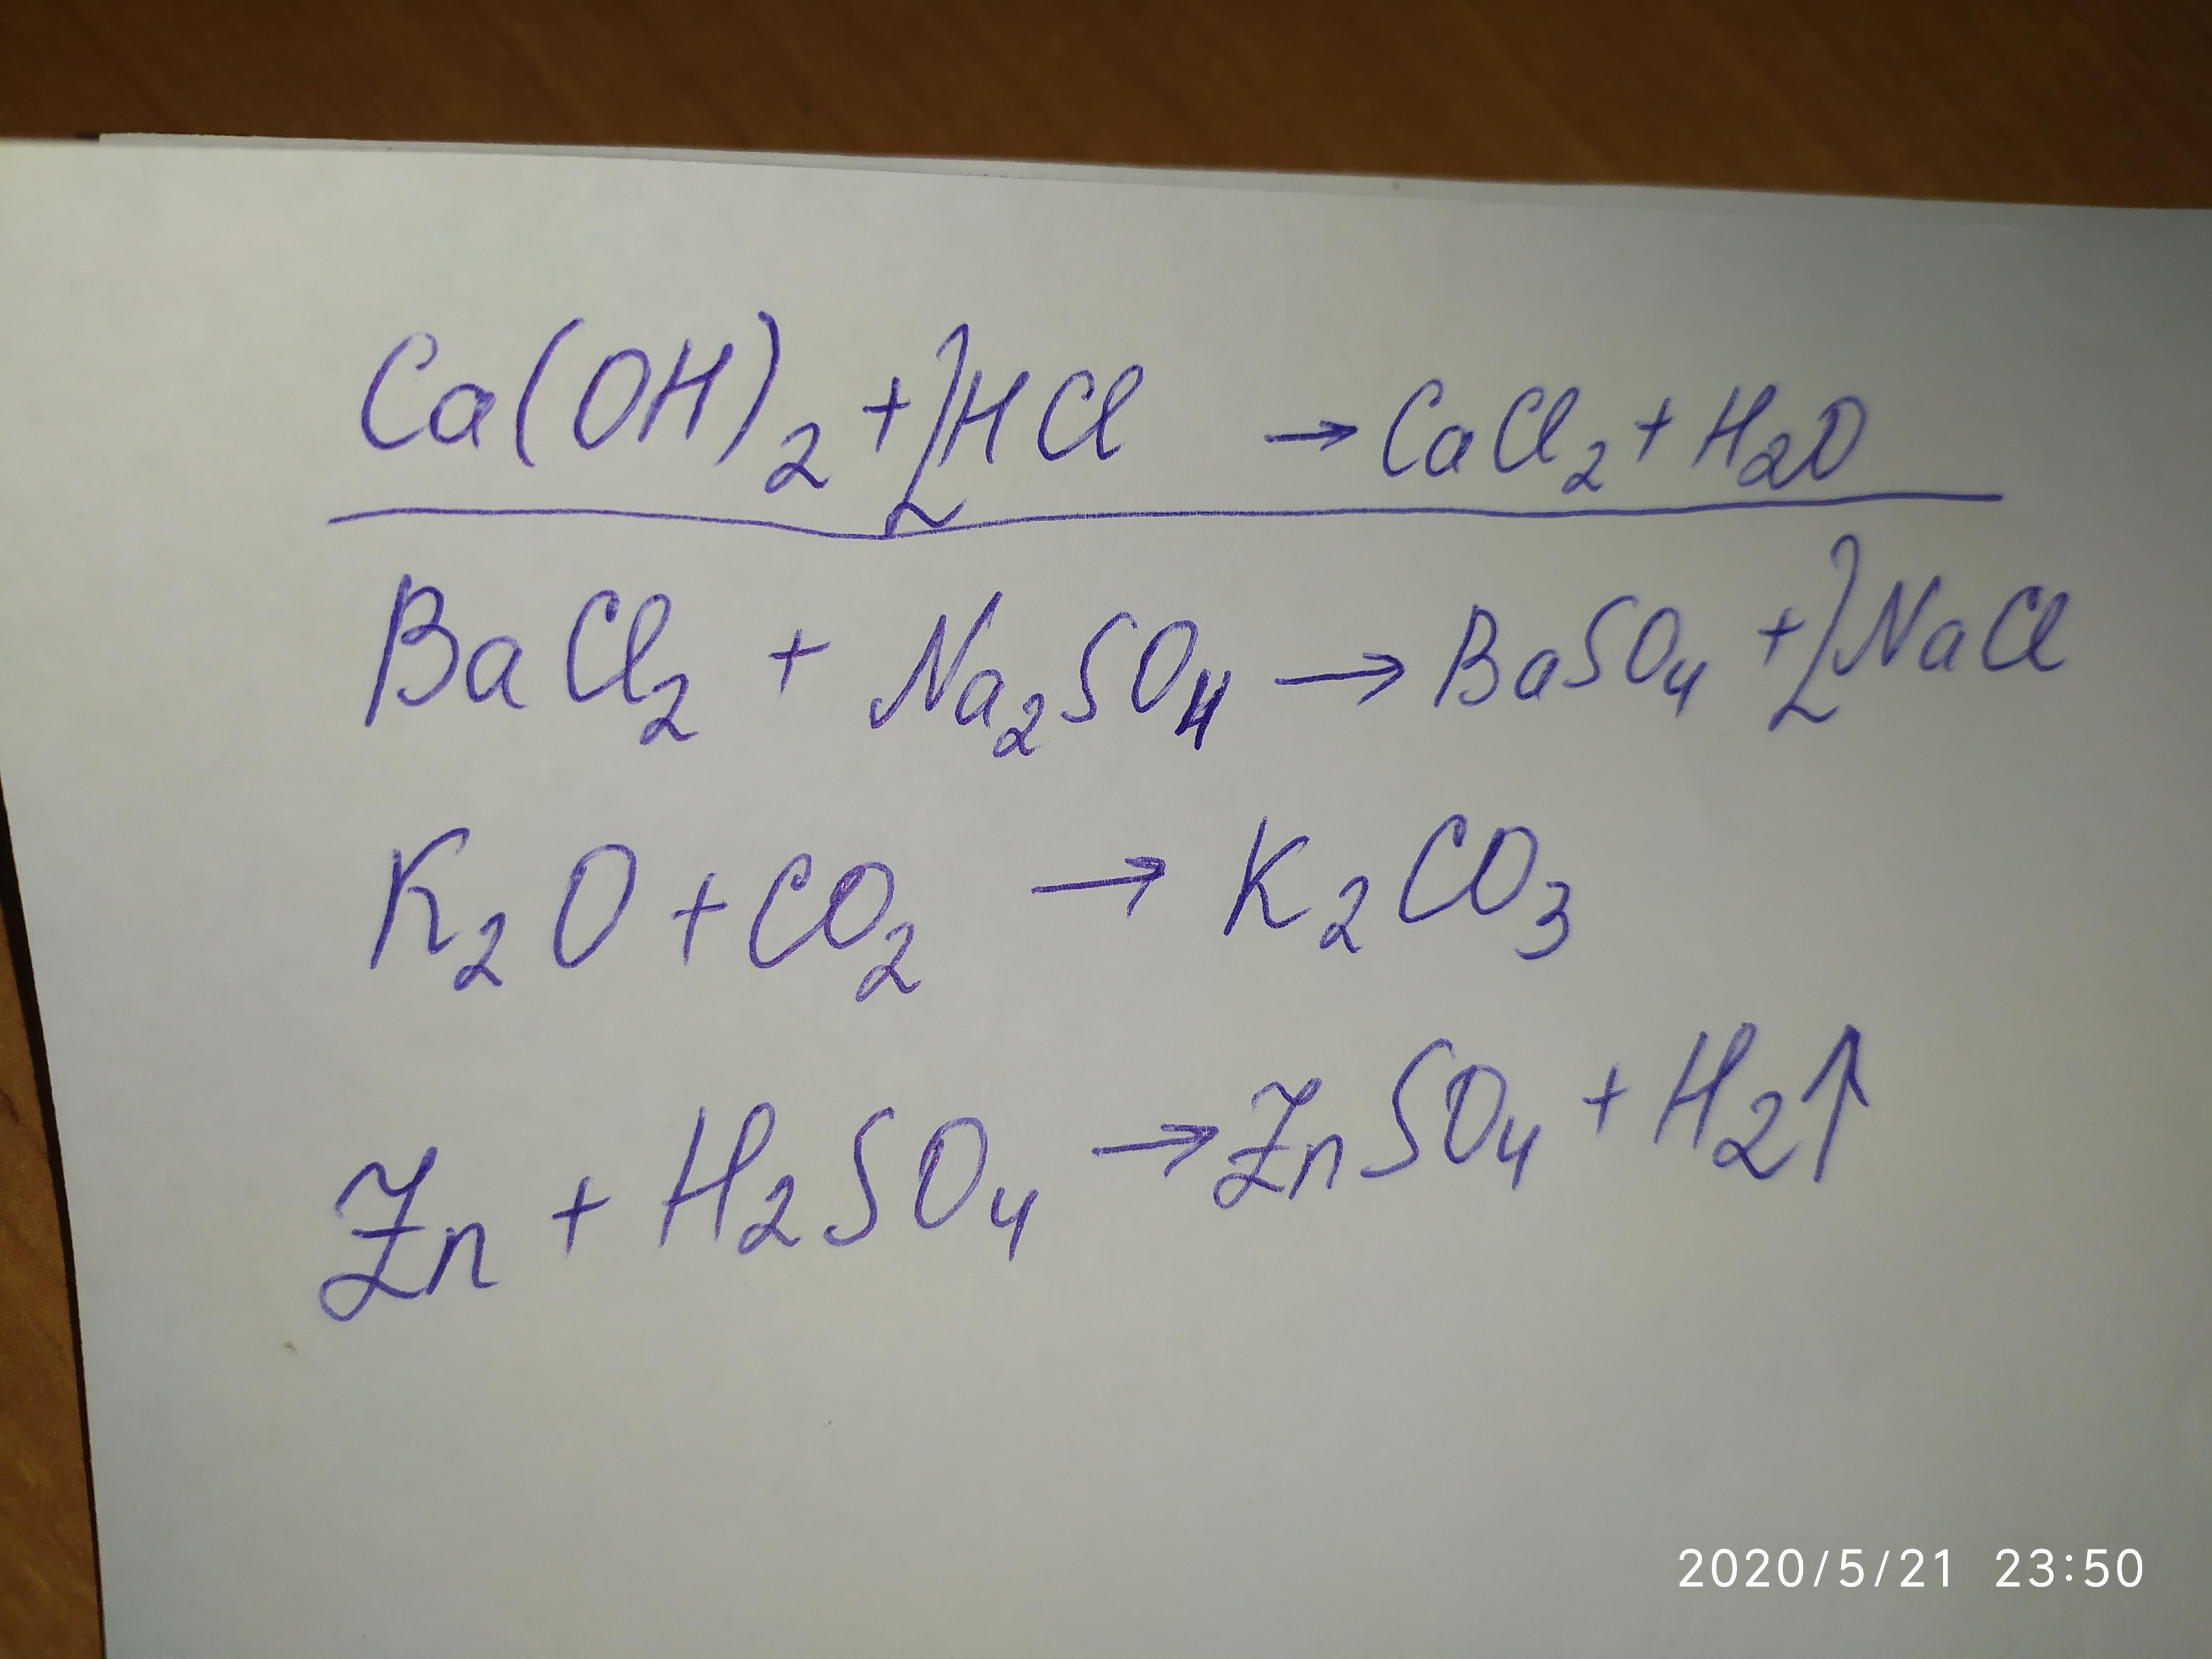 Ca(OH)₂ + 2HCl → CaCl₂ + H₂O
BaCl₂ + Na₂SO₄ → BaSO₄ + 2NaCl
K₂O + CO₂ → K₂CO₃
Zn + H₂SO₄ → ZnSO₄ + H₂↑
2020/5/21 23:50